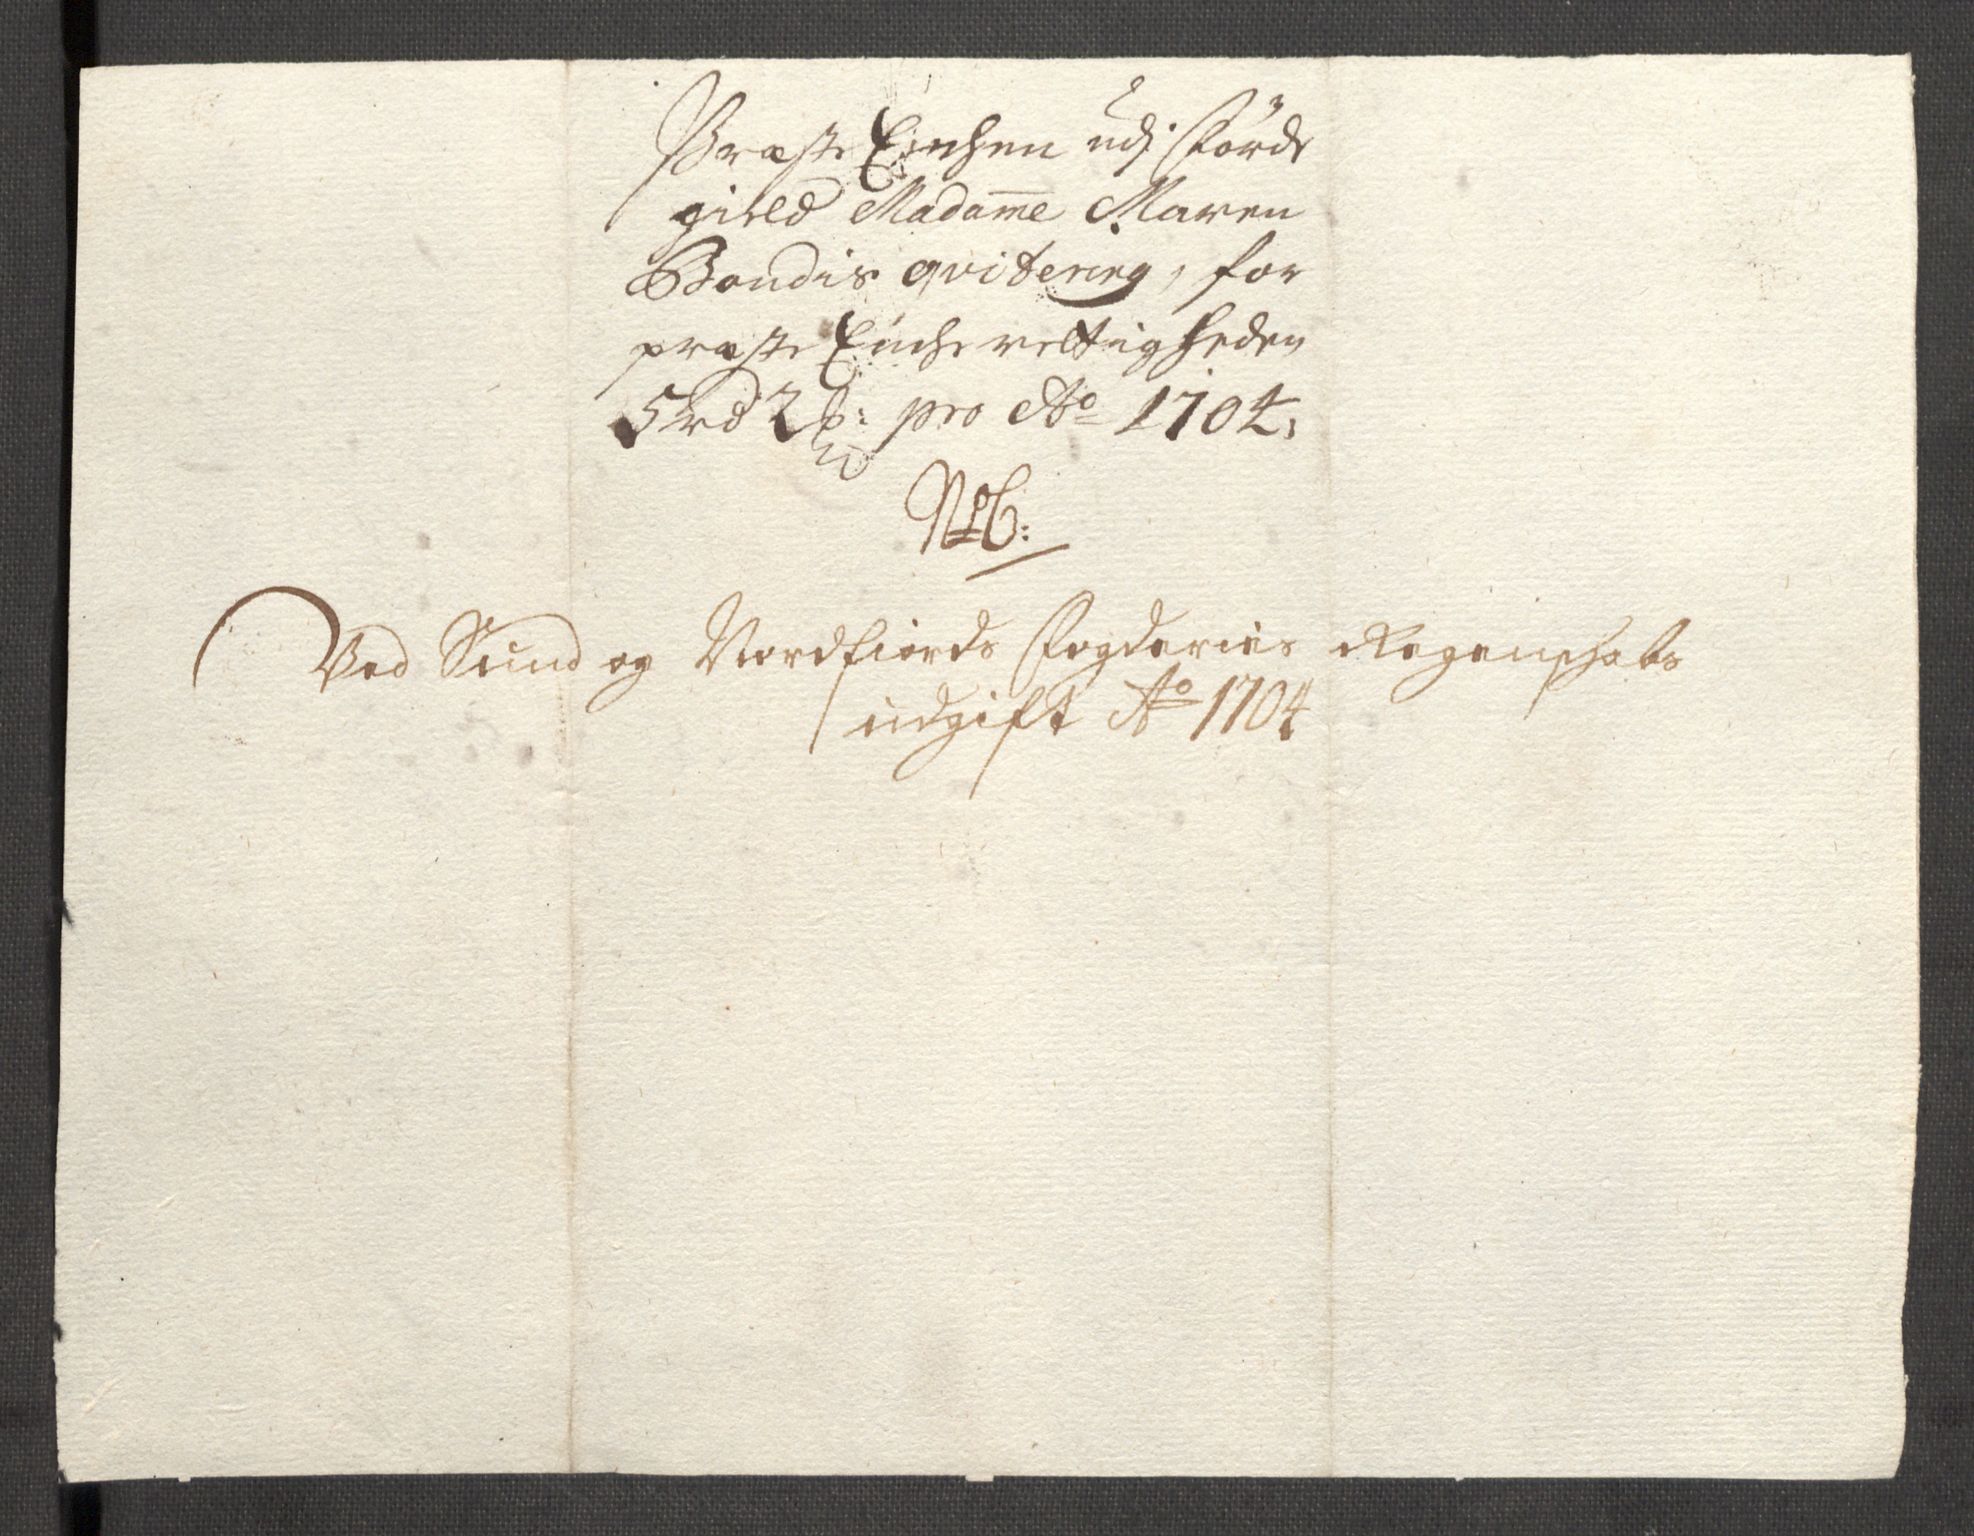 Præste Enchen udj Förde
gield Madame Maren
Bondis qvitering, for
præste Enche rettigheden
5 rd 2 ß: pro Ao 1704,
No 6:
Ved Sund og Nordfiords Fogderies Regenschabs
udgift Ao 1704